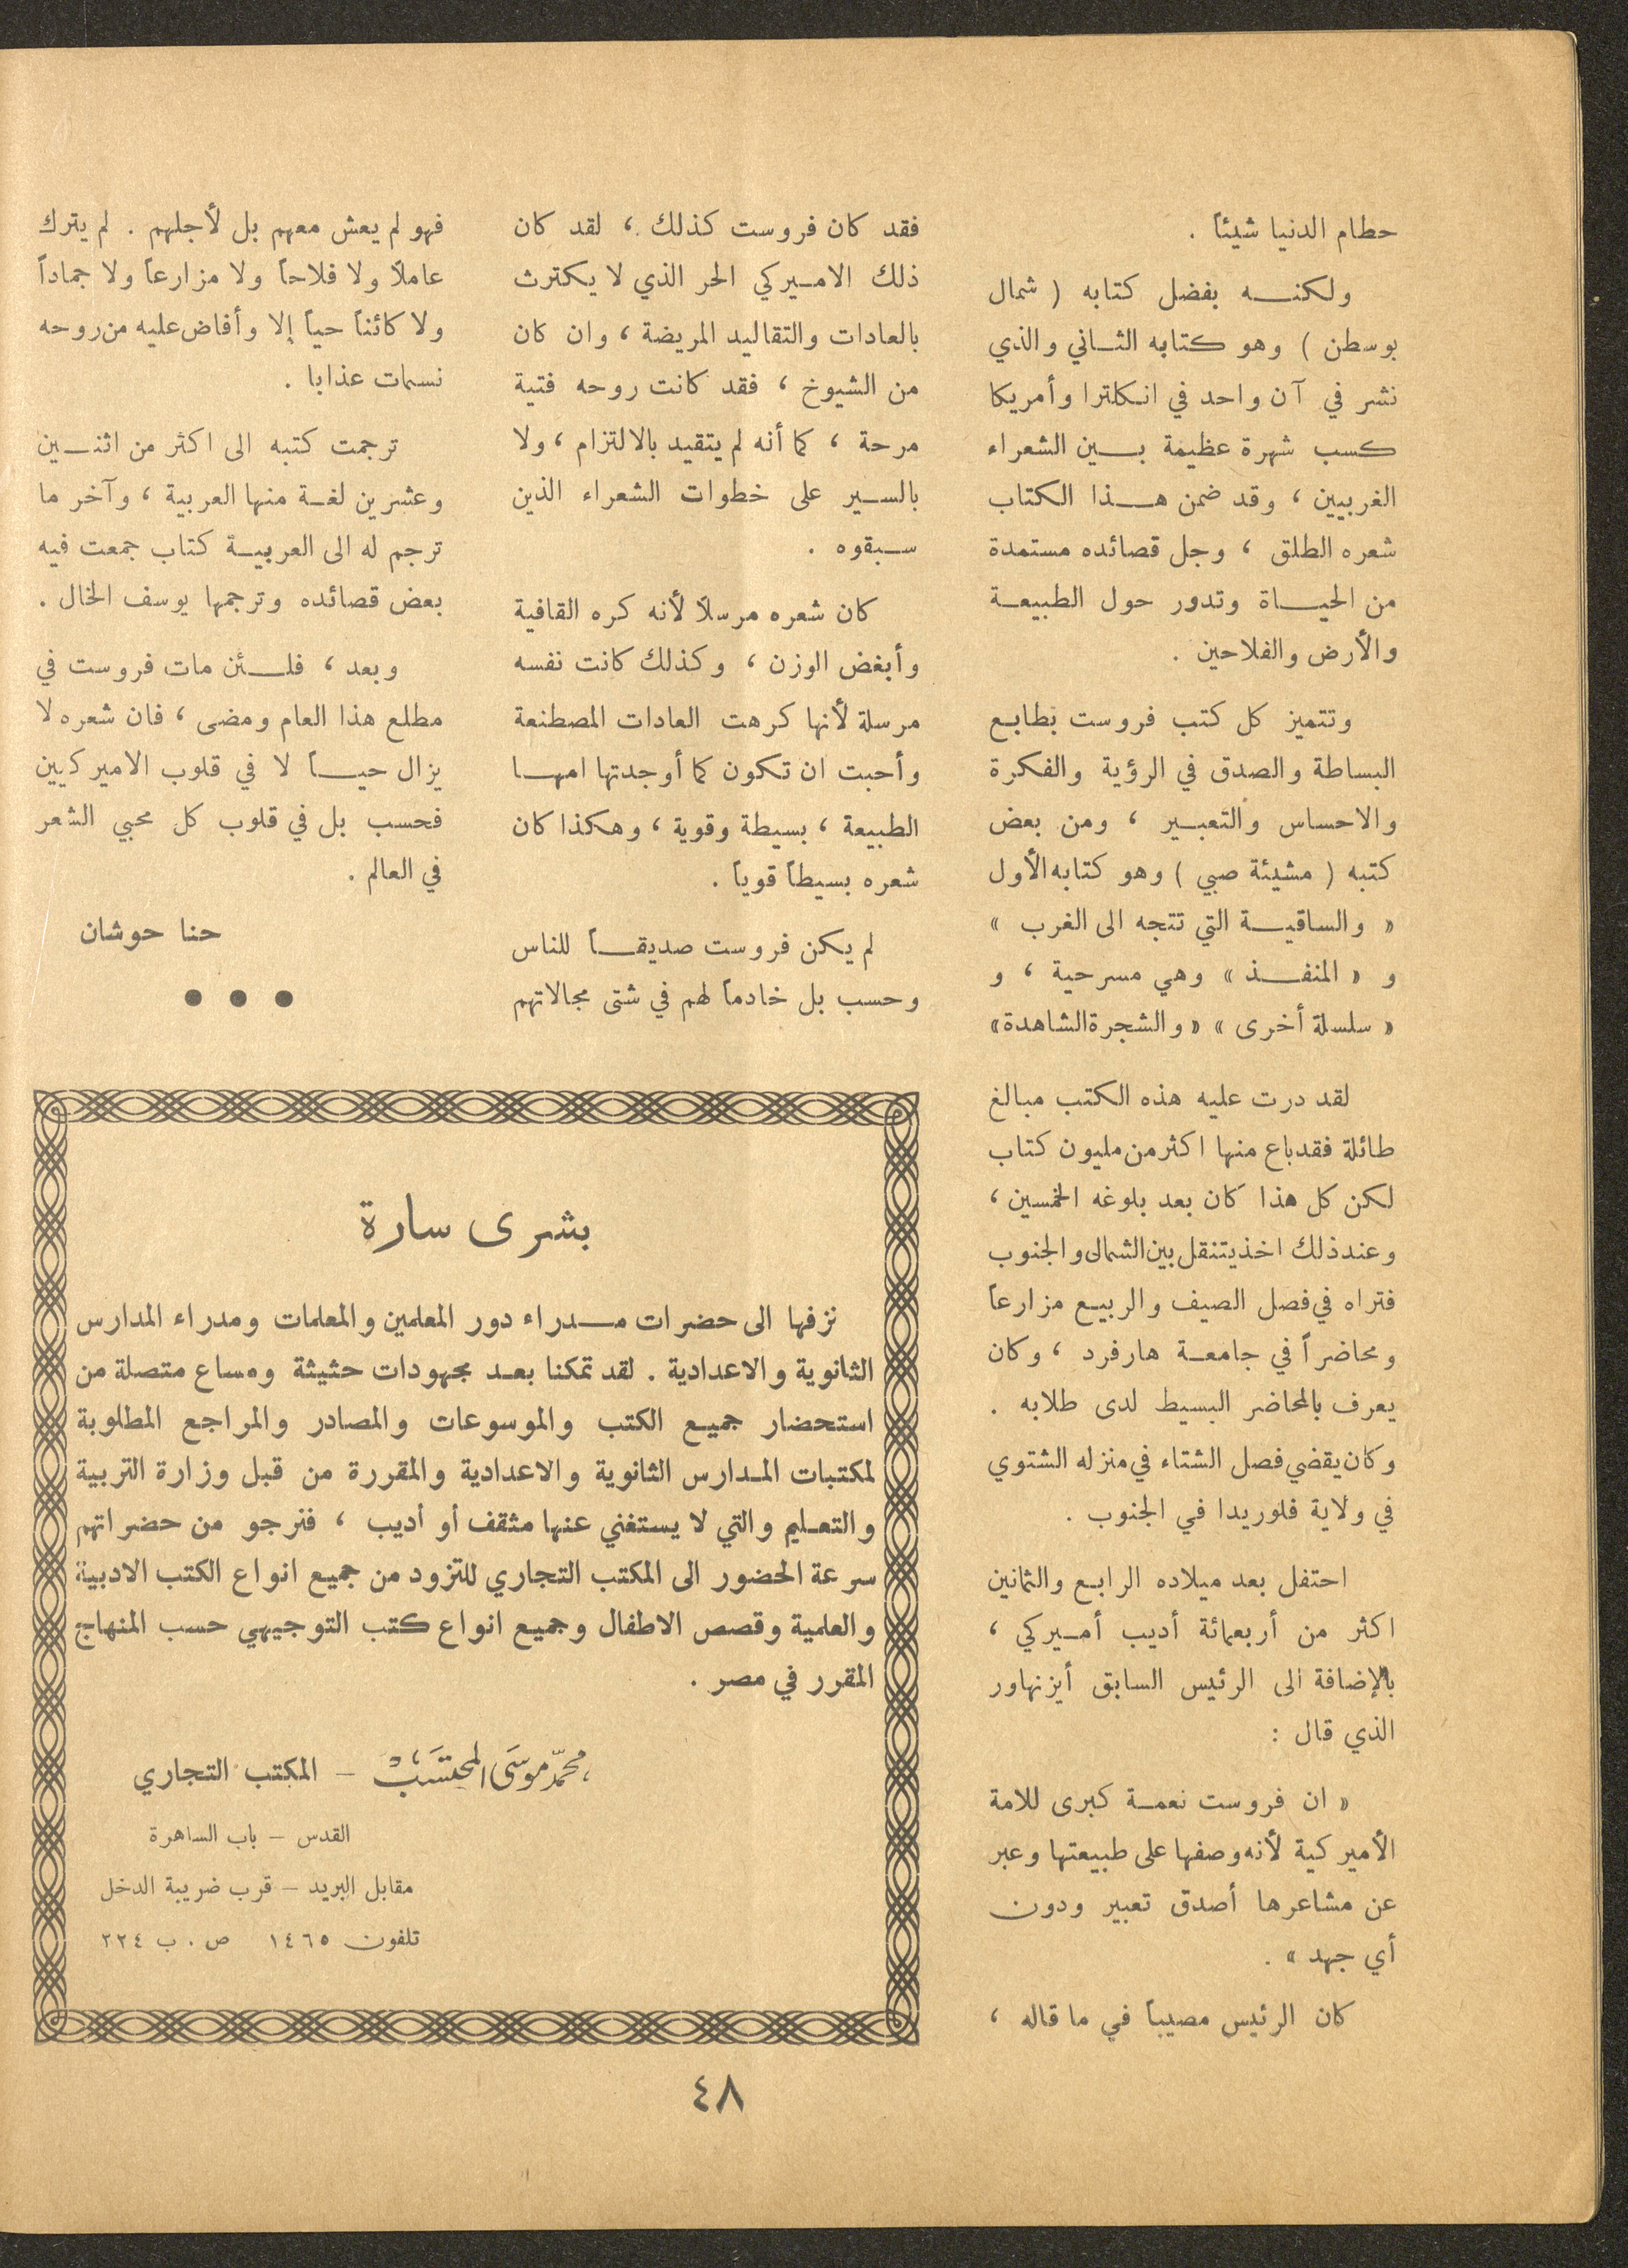 حطام الدنيا شيئاً .
ولكنه بفضل كتابه ( شمال
بوسطن ) وهو كتابه الثاني والذي
نشر في آن واحد في انكلترا وأمريكا
كسب شهرة عظيمة بين الشعراء
الغربيين ، وقد ضمن هذا الكتاب
شعره الطلق ، وجل قصائده مستمدة
من الحياة وتدور حول الطبيعة
والأرض والفلاحين .
وتتميز كل كتب فروست بطابع
البساطة والصدق في الرؤية والفكرة
والاحساس والتعبير ، ومن بعض
كتبه ( مشيئة صبي ) وهو كتابه الأول
« والساقية التي تتجه الى الغرب »
و « المنفذ » وهي مسرحية ، و
« سلسلة أخرى » « والشجرة الشاهدة »
لقد درت عليه هذه الكتب مبالغ
طائلة فقد باع منها اكثر من مليون كتاب
لكن كل هذا كان بعد بلوغه الخمسين ،
وعند ذلك اخذ يتنقل بين الشمال والجنوب
فتراه في فصل الصيف والربيع مزارعاً
ومحاضراً في جامعة هارفرد ، وكان
يعرف بالمحاضر البسيط لدى طلابه .
وكان يقضي فصل الشتاء في منزله الشتوي
في ولاية فلوريدا في الجنوب .
احتفل بعد ميلاده الرابع والثمانين
اكثر من أربعمائة أديب أميركي ،
بالإضافة الى الرئيس السابق أيزنهاور
الذي قال :
« ان فروست نعمة كبرى للامة
الأميركية لأنه وصفها على طبيعتها وعبر
عن مشاعرها أصدق تعبير ودون
أي جهد » .
كان الرئيس مصيباً في ما قاله ،
فقد كان فروست كذلك ، لقد كان
ذلك الاميركي الحر الذي لا يكترث
بالعادات والتقاليد المريضة ، وان كان
من الشيوخ ، فقد كانت روحه فتية
مرحة ، كما أنه لم يتقيد بالالتزام ، ولا
بالسير على خطوات الشعراء الذين
سبقوه .
كان شعره مرسلاً لأنه كره القافية
وأبغض الوزن ، وكذلك كانت نفسه
مرسلة لأنها كرهت العادات المصطنعة
وأحبت ان تكون كما أوجدتها امها
الطبيعة ، بسيطة وقوية ، وهكذا كان
شعره بسيطاً قوياً .
لم يكن فروست صديقاً للناس
وحسب بل خادماً لهم في شتى مجالاتهم
فهو لم يعش معهم بل لأجلهم . لم يترك
عاملاً ولا فلاحاً ولا مزارعاً ولا جماداً
ولا كائناً حياً إلا وأفاض عليه من روحه
نسمات عذابا .
ترجمت كتبه الى اكثر من اثنين
وعشرين لغة منها العربية ، وآخر ما
ترجم له الى العربية كتاب جمعت فيه
بعض قصائده وترجمها يوسف الخال .
وبعد ، فلئن مات فروست في
مطلع هذا العام ومضى ، فان شعره لا
يزال حياً لا في قلوب الاميركيين
فحسب بل في قلوب كل محبي الشعر
في العالم .
حنا حوشان
بشرى سارة
نزفها الى حضرات مدراء دور المعلمين والمعلمات ومدراء المدارس
الثانوية والاعدادية . لقد تمكنا بعد مجهودات حثيثة ومساع متصلة من
استحضار جميع الكتب والموسوعات والمصادر والمراجع المطلوبة
لمكتبات المدارس الثانوية والاعدادية والمقررة من قبل وزارة التربية
والتعليم والتي لا يستغني عنها مثقف أو أديب ، فنرجو من حضراتهم
سرعة الحضور الى المكتب التجاري للتزود من جميع انواع الكتب الادبية
والعلمية وقصص الاطفال وجميع انواع كتب التوجيهي حسب المنهاج
المقرر في مصر .
محمّد موسَى المحتسَب – المكتب التجاري
القدس – باب الساهرة
مقابل البريد – قرب ضريبة الدخل
تلفون ١٤٦٥ ص . ب ٢٢٤
٤٨